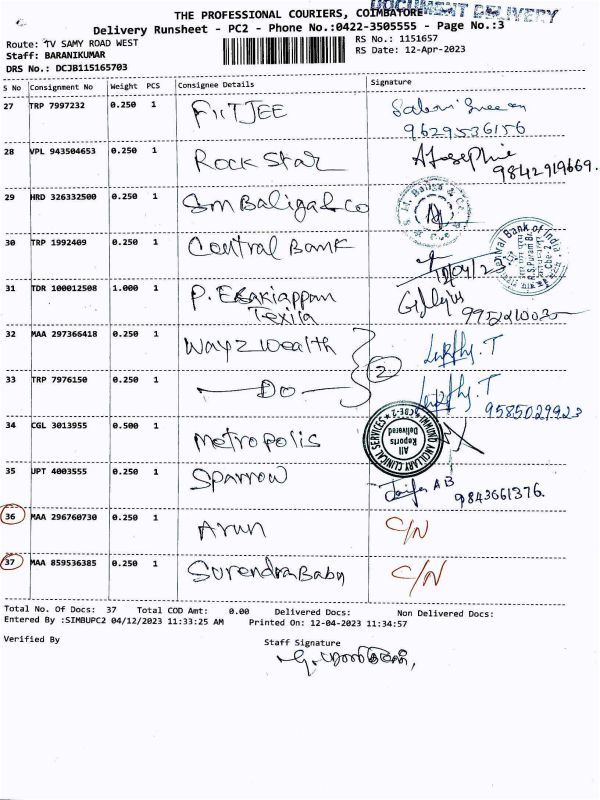 DOCUMENT DELIVERY
THE PROFESSIONAL COURIERS, COIMBATORE
Delivery Runsheet - PC2 - Phone No.:0422-3505555 - Page No.:3
Route: TV SAMY ROAD WEST
RS No.: 1151657
Staff: BARANIKUMAR
RS Date: 12-Apr-2023
DRS No.: DCJB115165703
S No Consignment No Weight PCS Consignee Details Signature
27 TRP 7997232 0.250 1 FIITJEE
9629536156
28 VPL 943504653 0.250 1 Rock Star A Josephine
9842919669.
29 HRD 326332500 0.250 1 Sm Baliga & Co
30 TRP 1992409 0.250 1 Central Bank
Central Bank of India
R.S.Puram Br.
Cbe-2
31 TDR 100012508 1.000 1 P. Esakiappan
Texila
32 MAA 297366418 0.250 1 Way 2 Wealth
2
33 TRP 7976150 0.250 1 Do
9585029923
34 CGL 3013955 0.500 1 Metropolis
IMMUNO ANCILLARY CLINICAL SERVICES
CBE-2
All
Reports
Delivered
35 UPT 4003555 0.250 1 Sparrow
9843661376.
36 MAA 296760730 0.250 1 Arun C/N
37 MAA 859536385 0.250 1 Surendra Babu C/N
Total No. Of Docs: 37 Total COD Amt: 0.00 Delivered Docs: Non Delivered Docs:
Entered By :SIMBUPC2 04/12/2023 11:33:25 AM Printed On: 12-04-2023 11:34:57
Verified By Staff Signature